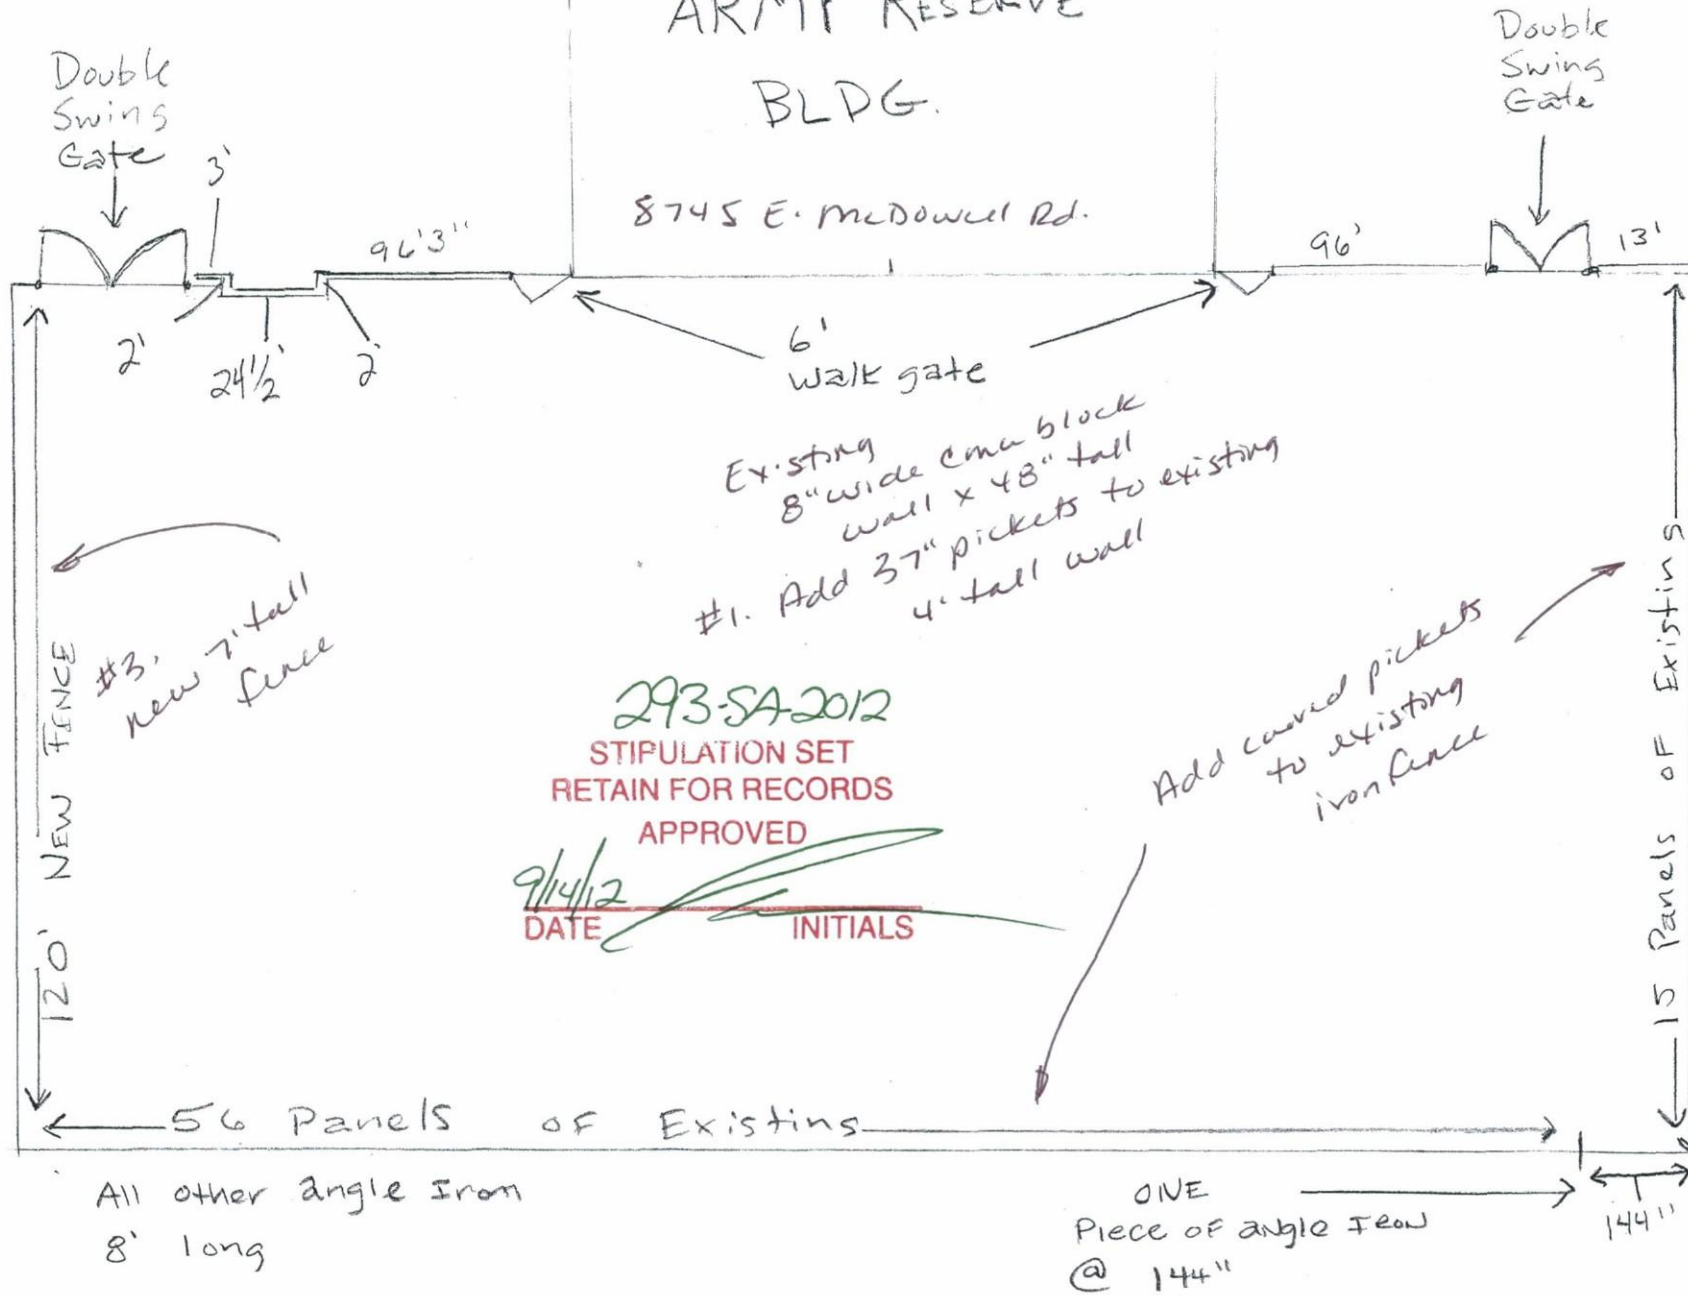 ARMY RESERVE
BLDG.
8745 E. McDowell Rd.
Double
Swing
Gate
Double
Swing
Gate
3'
96'3"
96'
13'
2'
24½'
2'
6'
Walk gate
Existing
8" wide cmu block
wall x 48" tall
#1. Add 37" pickets to existing
4' tall wall
#3.
new 7' tall
fence
120' NEW FENCE
293-SA-2012
STIPULATION SET
RETAIN FOR RECORDS
APPROVED
9/14/12
DATE INITIALS
Add curved pickets
to existing
iron fence
15 Panels OF Existing
56 Panels OF Existing
All other angle Iron
8' long
ONE
Piece OF angle Iron
@ 144"
144"